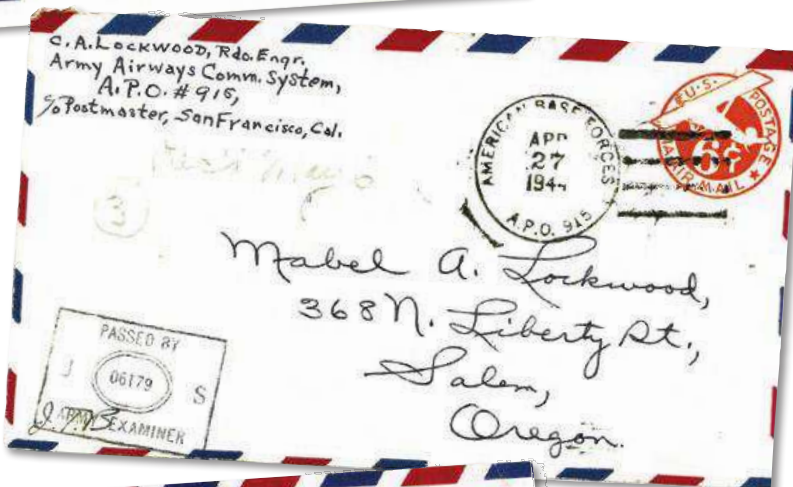 C. A. LOCKWOOD, Rdo. Engr.
Army Airways Comm. System,
A.P.O. # 915,
c/o Postmaster, San Francisco, Cal.
AMERICAN BASE FORCES
APR
27
A.P.O. 915
U.S. POSTAGE
6¢
AIR MAIL
3
Mabel A. Lockwood,
368 N. Liberty St.,
Salem,
Oregon.
PASSED BY
U 06179 S
ARMY EXAMINER